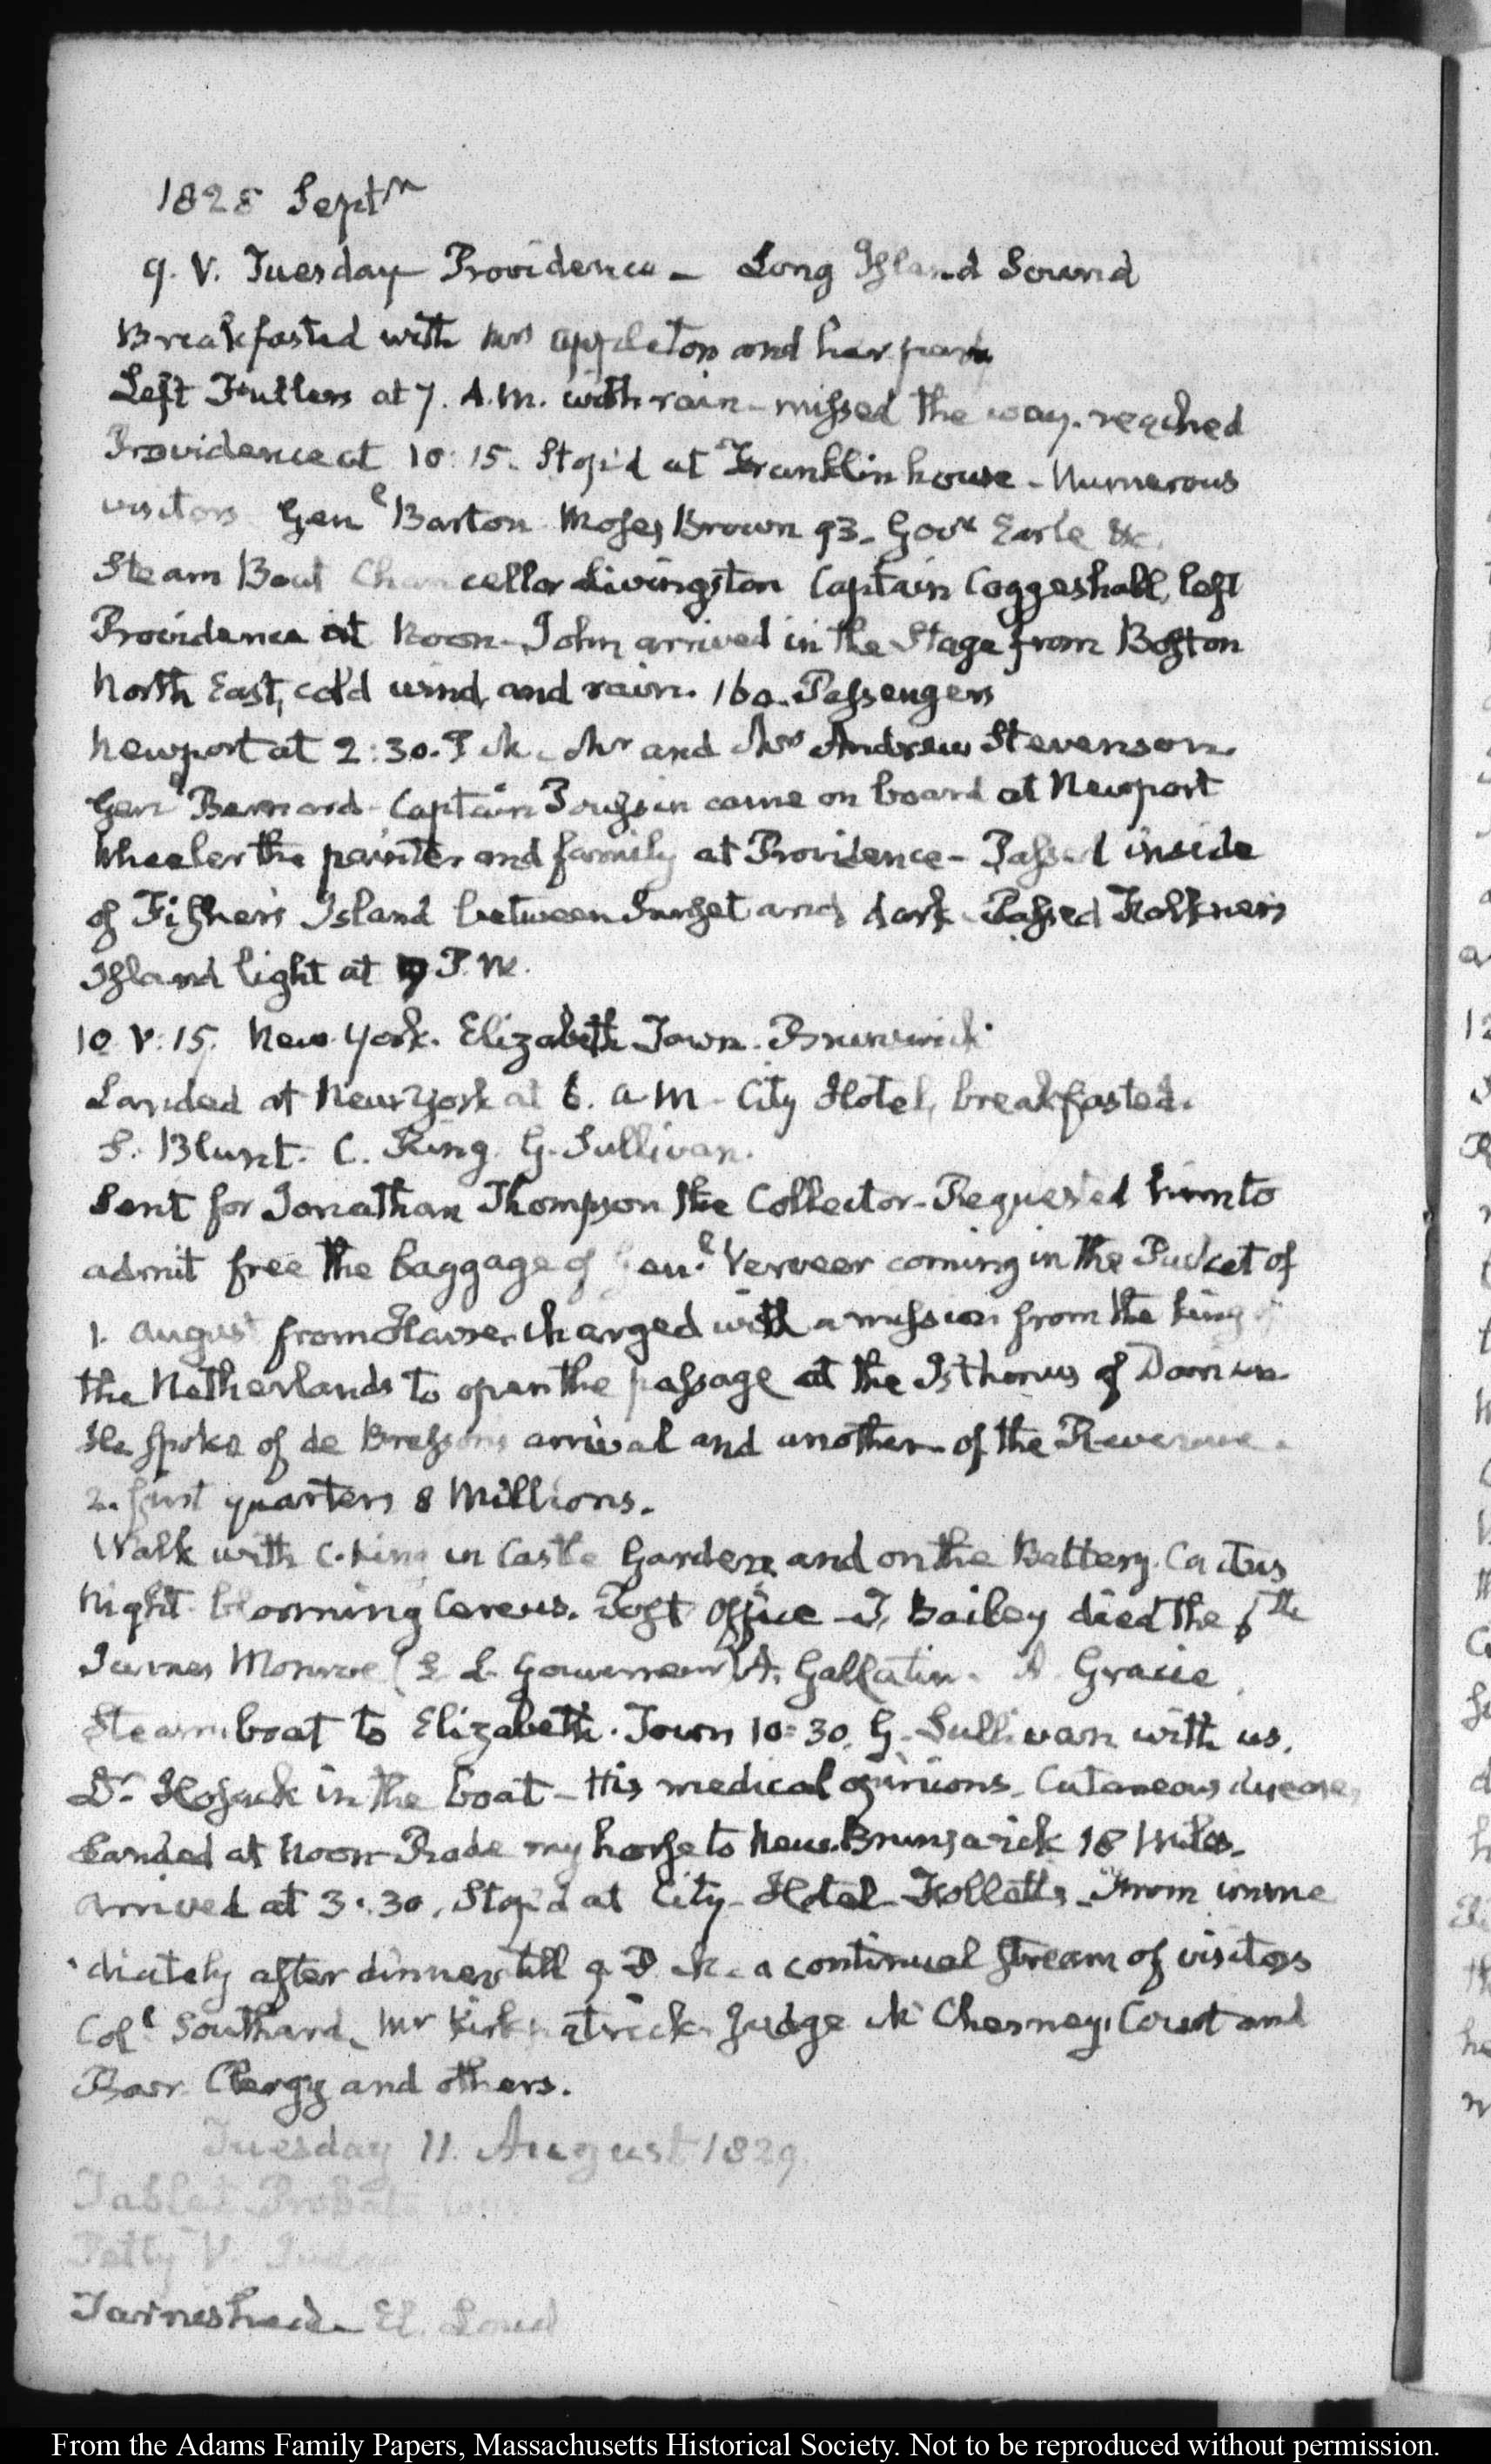 1828 Septr
9. V. Tuesday Providence – Long Island Sound
Breakfasted with Mrs Appleton and her party
Left Fullers at 7. A.M. with rain – missed the way. reached
Providence at 10:15. Stop'd at Franklin house – Numerous
visitors Genl Barton Moses Brown 93 – Govr Earle &c.
Steam Boat Chancellor Livingston Captain Coggeshall, left
Providence at Noon – John arrived in the Stage from Boston
North East, cold wind, and rain. 160. Passengers
Newport at 2:30. P.M. Mr and Mrs Andrew Stevenson.
Genl Bernard – Captain Poussin came on board at Newport
Wheeler the painter and family at Providence – Passed inside
of Fisher's Island between Sunset and dark – Passed Falkner's
Island light at 9 P.M.
10. V:15. New-York. Elizabeth-Town. Brunswick.
Landed at New York at 6. A.M – City Hotel, breakfasted.
S. Blunt. C. King. G. Sullivan.
Sent for Jonathan Thompson the Collector – Requested him to
admit free the baggage of Genl Verveer coming in the Packet of
1. August from Havre. charged with a mission from the King of
the Netherlands to open the passage at the Isthmus of Darien.
He spoke of de Bresson's arrival and another – of the Revenue.
2. first quarters 8 Millions.
Walk with C. King in Castle Garden, and on the Battery. Cactus
Night-blooming Cereus. Post Office – T. Bailey died the 6th
James Monroe (S. L. Gouverneur) A. Gallatin. A. Gracie.
Steam-boat to Elizabeth-Town 10:30. G. Sullivan with us.
Dr Hosack in the boat – His medical opinions. Cutaneous disease,
Landed at Noon – Rode my horse to New-Brunswick 18 Miles.
Arrived at 3:30. Stop'd at City-Hotel – Follett's – From imme
diately after dinner till 9 P.M. a continual stream of visitors
Coll Southard, Mr Kirkpatrick. Judge McChesney, Court and
Bar. Clergy and others.
Tuesday 11. August 1829.
Tablet Probate
Petty V. Judge
El. Loud